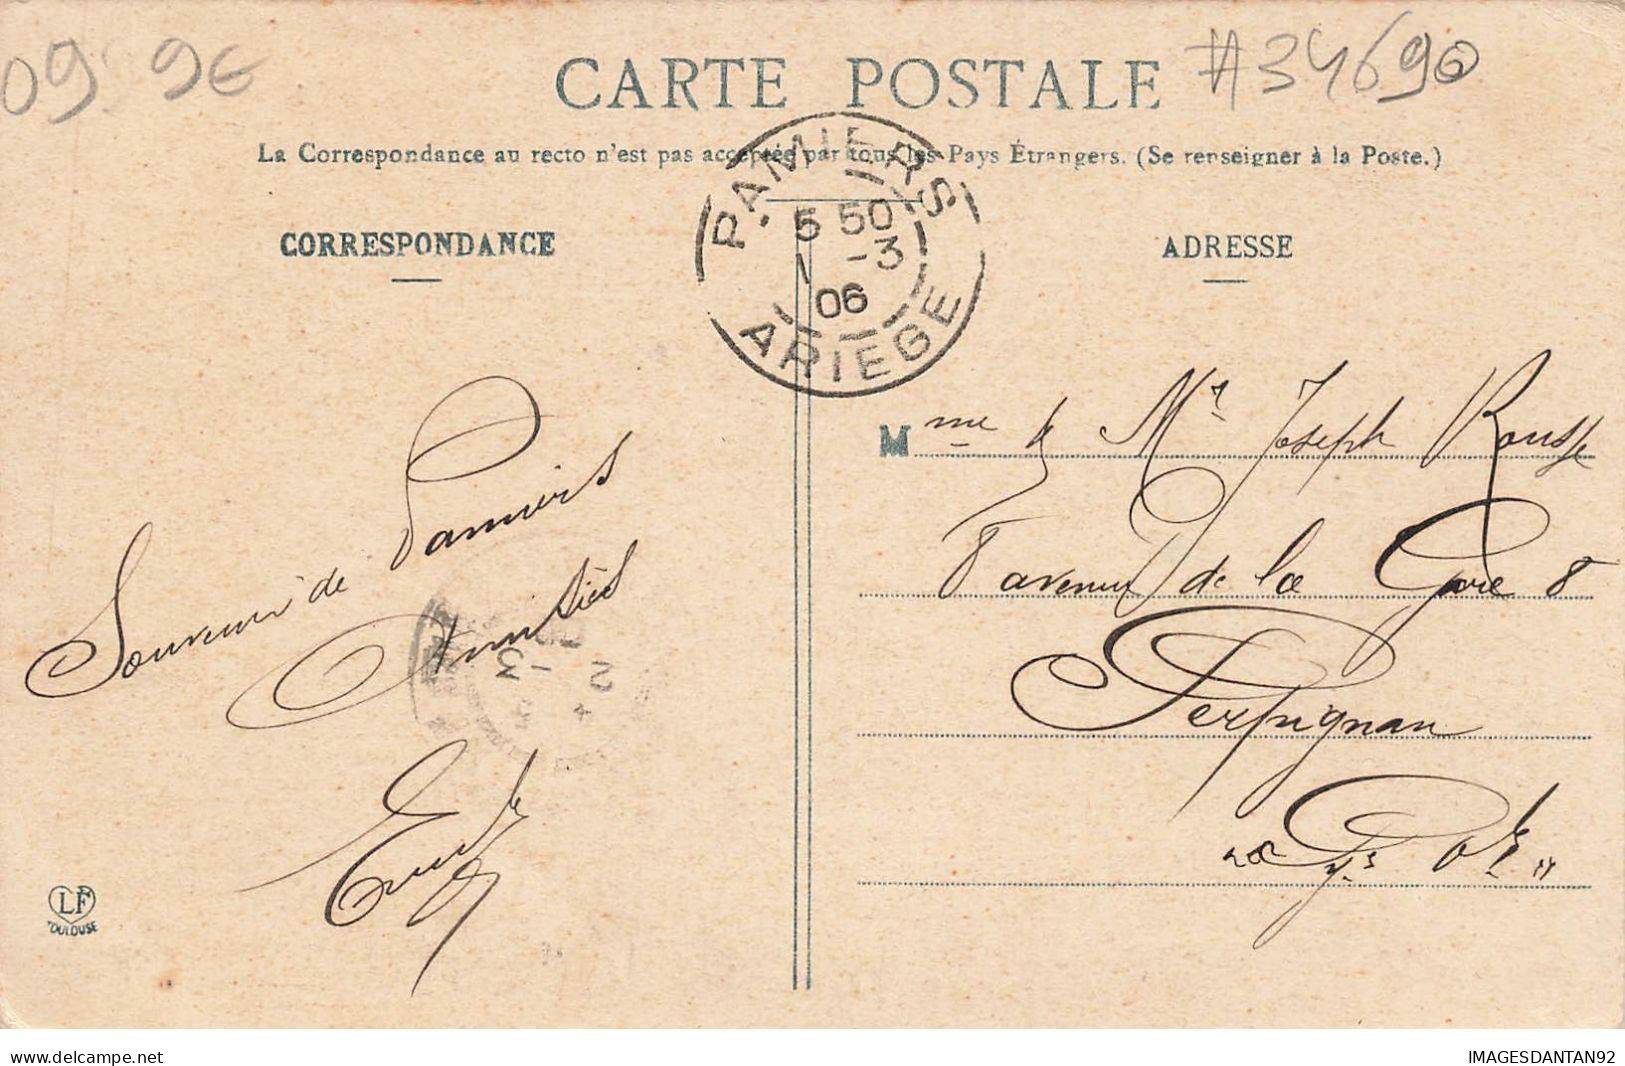 09 9€
CARTE POSTALE
#34690
La Correspondance au recto n'est pas acceptée par tous les Pays Étrangers. (Se renseigner à la Poste.)
PAMIERS
5 50
1 -3
06
ARIEGE
CORRESPONDANCE
ADRESSE
Souvenir de Pamiers
Amitiés
2 -3
LF
TOULOUSE
Mme & Mr Joseph Rousse
8 avenue de la Gare 8
Perpignan
Pys Ores
delcampe.net
IMAGESDANTAN92